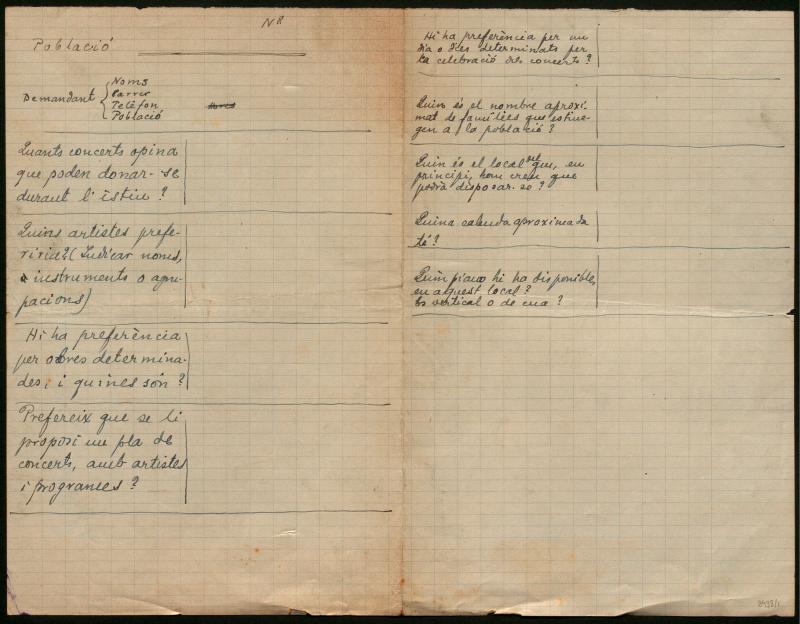 Nº
Població
Demandant
Noms
Carrer
Telèfon
Població
Quants concerts opina
que poden donar-se
durant l'èstiu?
Quins artistes prefe-
riria? (Indicar noms,
instruments o agru-
pacions)
Hi ha preferència
per obres determina-
des, i quines són?
Prefereix que se li
proposi un pla de
concerts, amb artistes
i programes?
Hi ha preferència per un
dia o dies determinats per
la celebració dels concerts?
Quin és el nombre aproxi-
mat de famílies que estiue-
gen a la població?
Quin és el local del que, en
principi, hom creu que
podrà disposar-se?
Quina cabuda aproximada
té?
Quin piano hi ha disponible,
en aquest local?
Es vertical o de cua?
2933/1